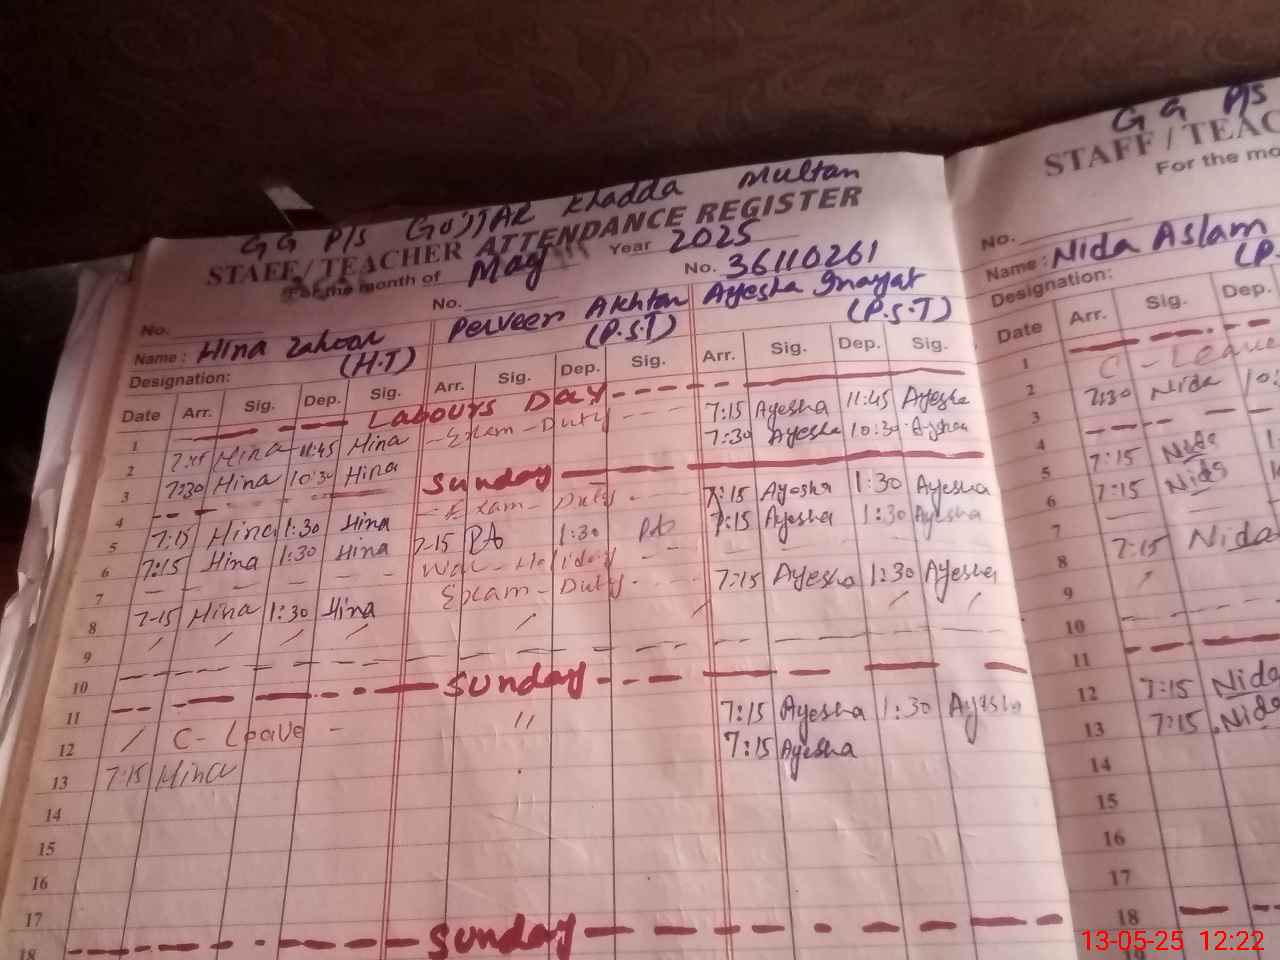 GG P/S GUJJAR Khadda Multan
STAFF / TEACHER ATTENDANCE REGISTER
For the month of May Year 2025
No. No. No. 36110261
Name : Hina Zahoor Perveen Akhtar Ayesha Inayat
Designation: (H.T) (P.S.T) (P.S.T)
Date Arr. Sig. Dep. Sig. Arr. Sig. Dep. Sig. Arr. Sig. Dep. Sig.
1 Labours Day
2 Hina 11:45 Hina - Exam - Duty 7:15 Ayesha 11:45 Ayesha
3 7:30 Hina 10:30 Hina 7:30 Ayesha 10:30 Ayesha
4 Sunday
5 7:15 Hina 1:30 Hina Exam - Duty 7:15 Ayesha 1:30 Ayesha
6 7:15 Hina 1:30 Hina 7-15 1:30 7:15 Ayesha 1:30 Ayesha
7 Holiday
8 7-15 Hina 1:30 Hina Exam - Duty 7:15 Ayesha 1:30 Ayesha
9
10
11 Sunday
12 C- Leave - " 7:15 Ayesha 1:30 Ayesha
13 7:15 Hina 7:15 Ayesha
14
15
16
17
18 Sunday
GG P/S
STAFF / TEAC
For the mo
No.
Name : Nida Aslam
Designation: (P.
Date Arr. Sig. Dep.
1
2 C - Leave
3 7:30 Nida 10:
4
5 7:15 Nida
6 7:15 Nida
7
8 7:15 Nida
9
10
11
12 7:15 Nida
13 7:15 Nida
14
15
16
17
18
19
13-05-25 12:22